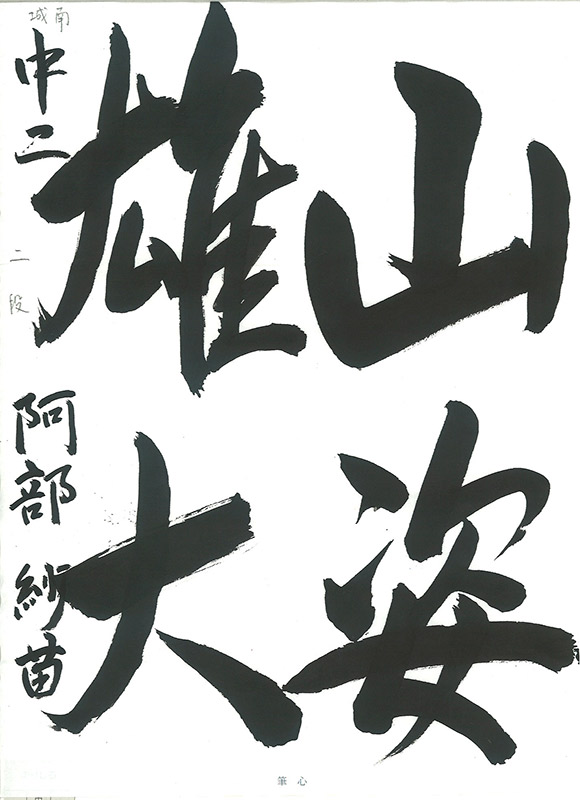 山姿
雄大
城南
中二
二段
阿部紗苗
心筆